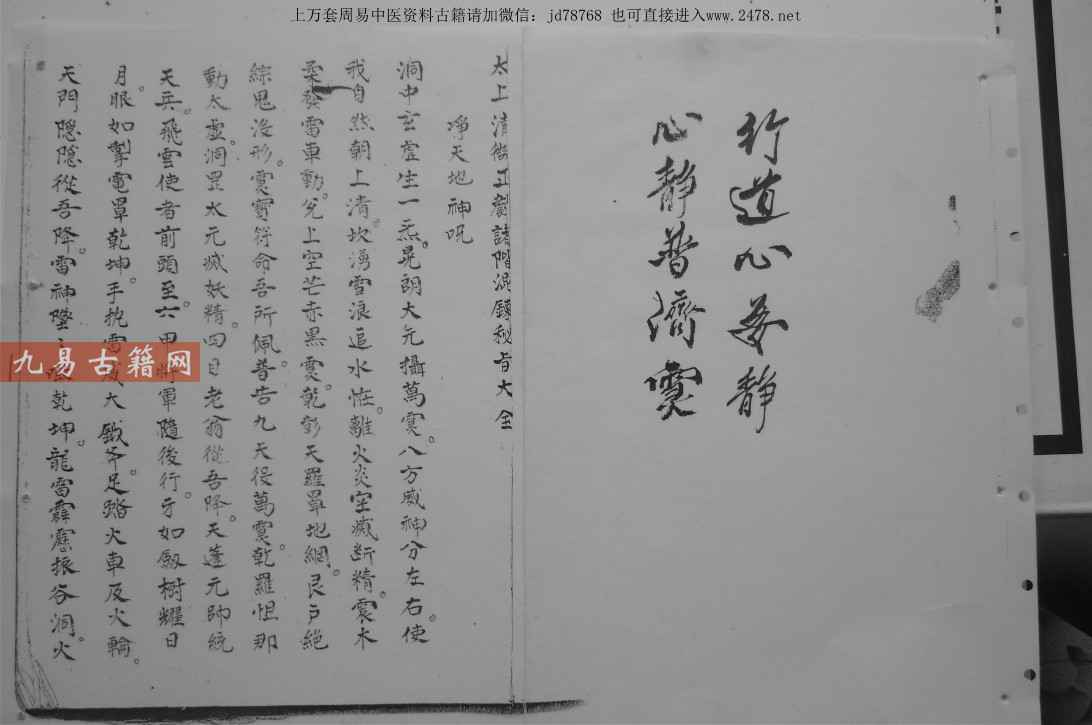 上万套周易中医资料古籍请加微信：jd78768 也可直接进入www.2478.net
行道心要静
心静普濟灵
太上清微正劄諸階混鍊秘旨大全
淨天地神呪
洞中玄虚生一炁。晃朗大元攝萬灵。八方威神分左右。使
我自然朝上清。坎湧雪浪追水怪。離火炎空滅断精。震木
柔發雷車動。兑上空芒赤黑灵。乾彰天羅罩地網。艮户絶
綜鬼没形。灵寳符命吾所佩。普告九天役萬灵。乾羅怛那
動太虚。洞罡太元滅妖精。四目老翁從吾降。天蓬元帥統
天兵。飛雲使者前頭至。六甲將軍隨後行。牙如劔树耀日
月。眼如掣電罩乾坤。手执雷 大 斧。足踏火車及火輪。
天門隐隐從吾降。雷神墜 乾坤。龍雷霹靂振谷洞。火
九易古籍网